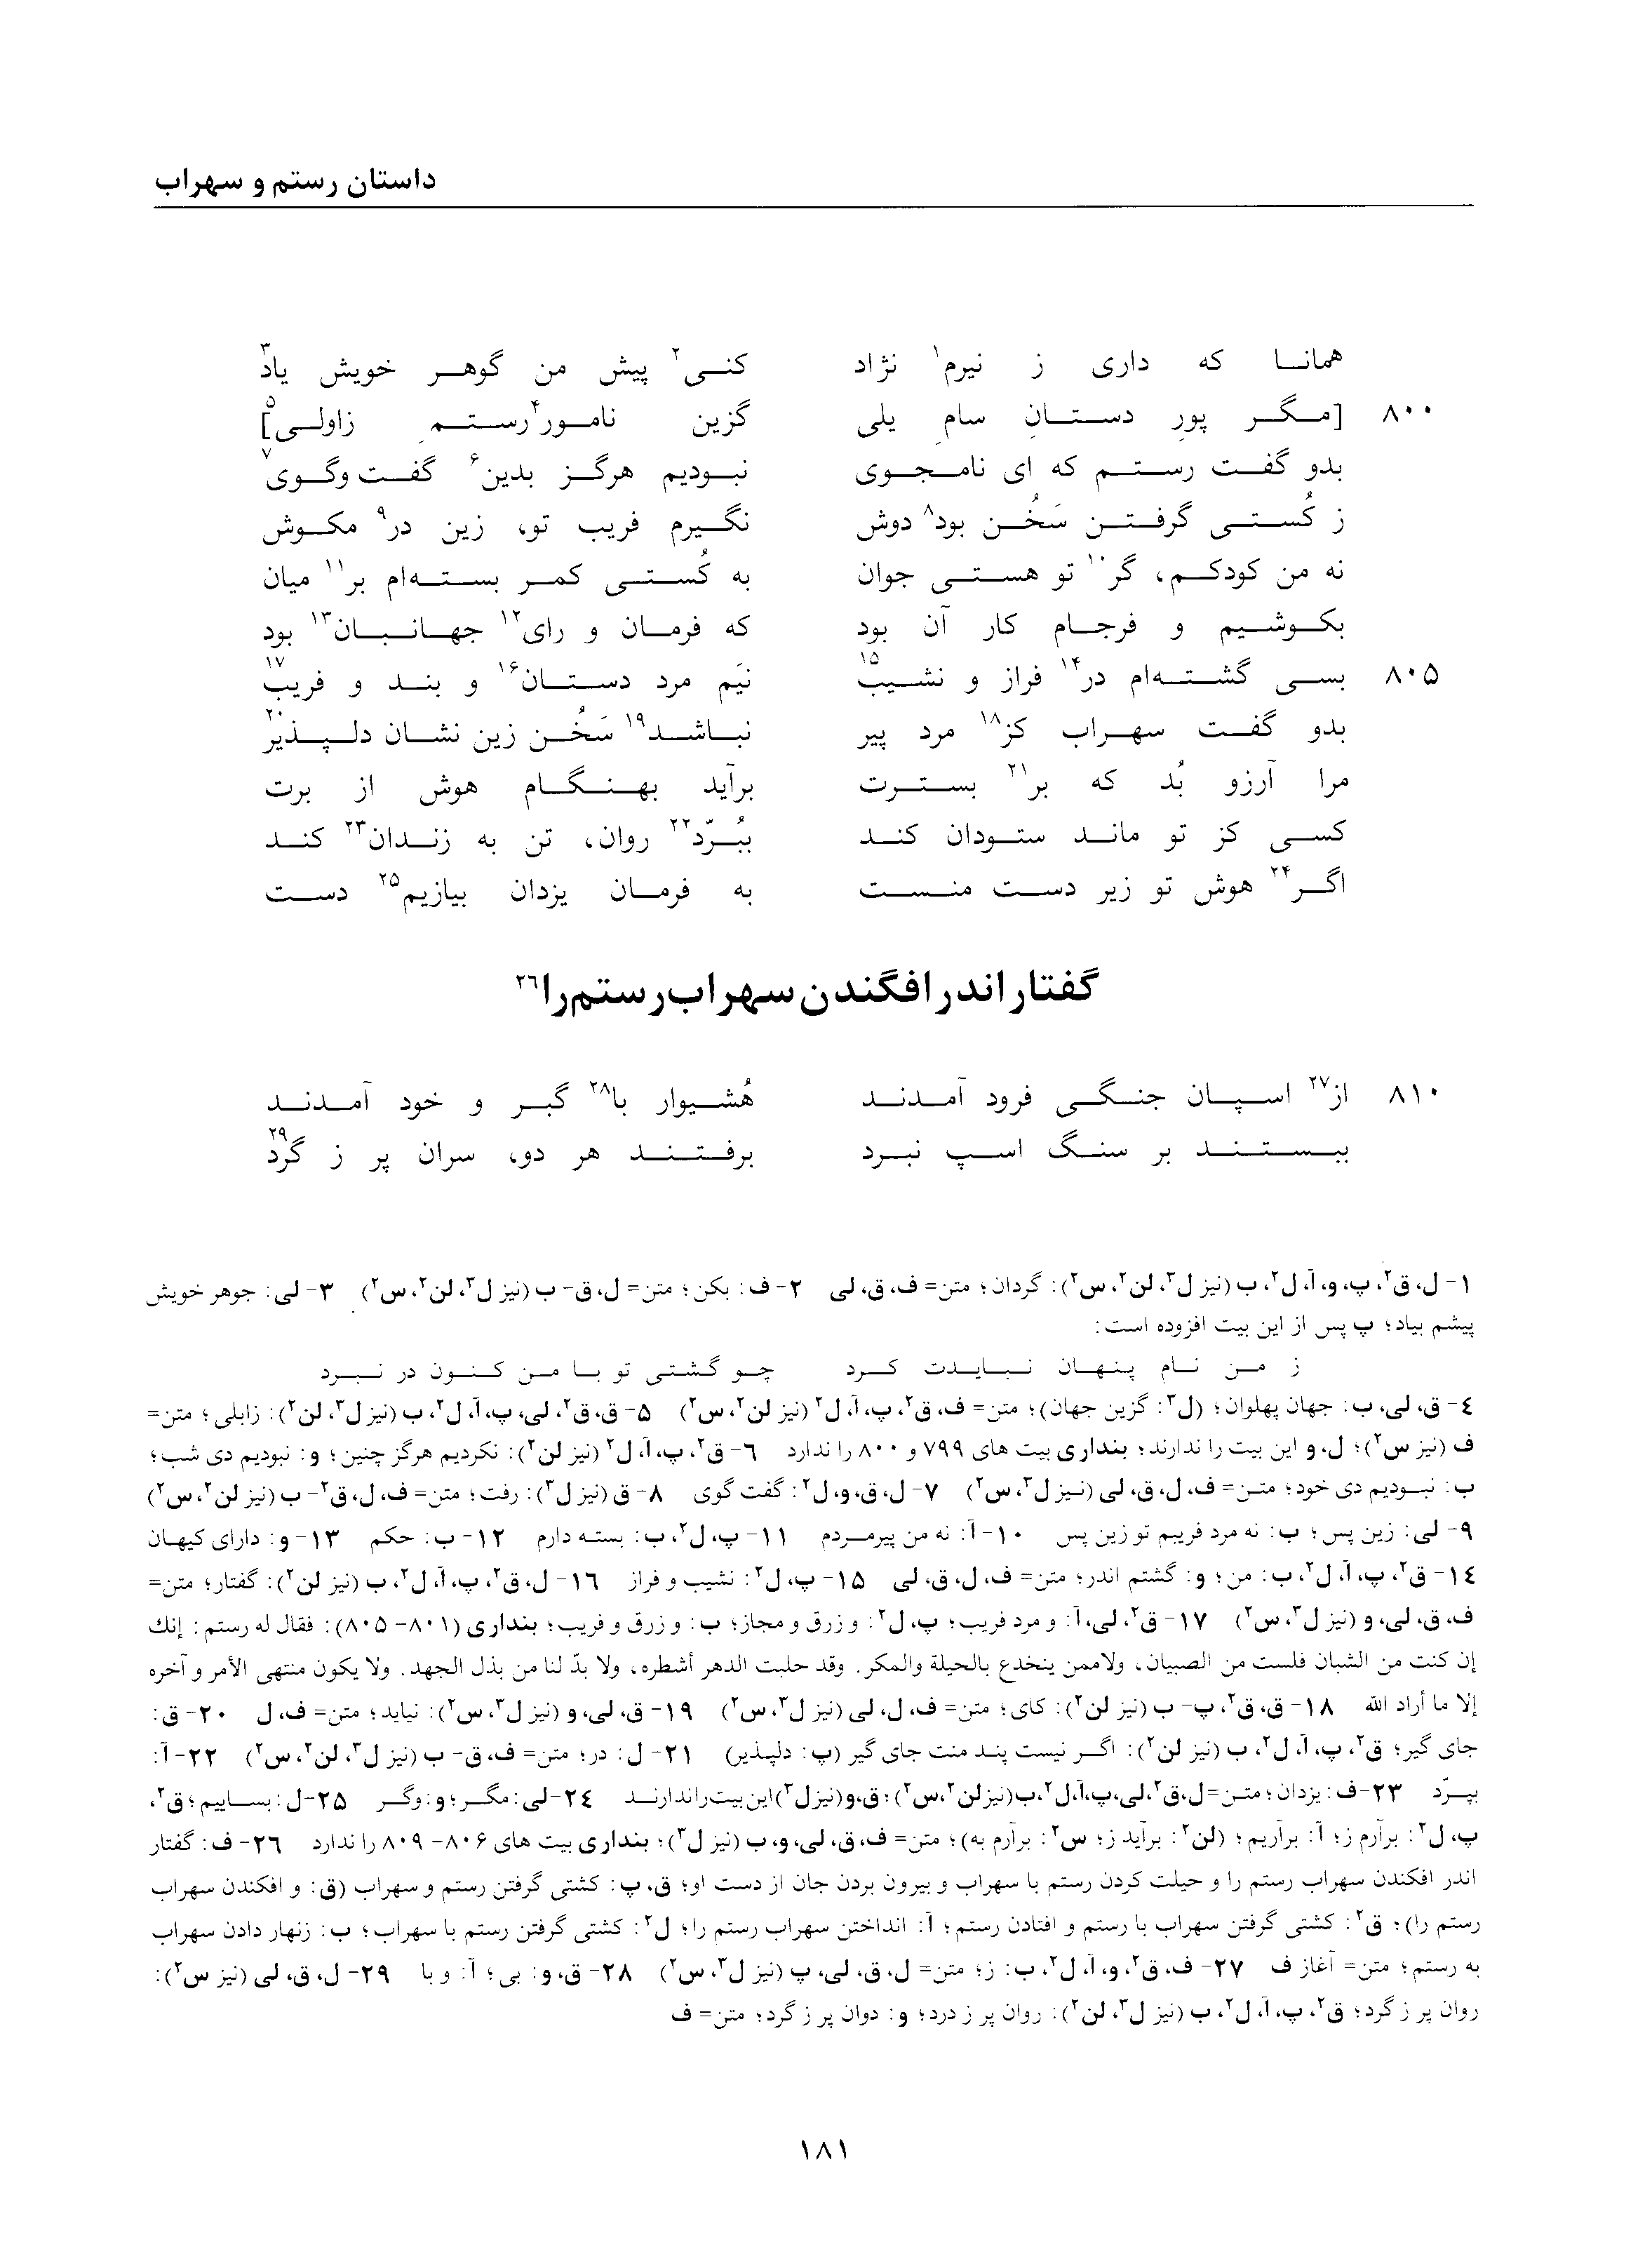 داستان رستم و سهراب
همانا که داری ز نیرم¹ نژاد کنی² پیش من گوهر خویش یاد³
۸۰۰ [مگر پورِ دستانِ سامِ یلی گزین نامور⁴ رستمِ زاولی]⁵
بدو گفت رستم که ای نامجوی نبودیم هرگز بدین⁶ گفت وگوی⁷
ز کُستی گرفتن سَخُن بود⁸ دوش نگیرم فریب تو، زین در⁹ مکوش
نه من کودکم، گر¹⁰ تو هستی جوان به کُستی کمر بسته‌ام بر¹¹ میان
بکوشیم و فرجام کار آن بود که فرمان و رای¹² جهانبان¹³ بود
۸۰۵ بسی گشته‌ام در¹⁴ فراز و نشیب¹⁵ نیَم مرد دستان¹⁶ و بند و فریب¹⁷
بدو گفت سهراب کز¹⁸ مرد پیر نباشد¹⁹ سَخُن زین نشان دلپذیر²⁰
مرا آرزو بُد که بر²¹ بسترت برآید بهنگام هوش از برت
کسی کز تو ماند ستودان کند ببُرّد²² روان، تن به زندان²³ کند
اگر²⁴ هوش تو زیر دست منست به فرمان یزدان بیازیم²⁵ دست
گفتار اندر افگندن سهراب رستم را²⁶
۸۱۰ از²⁷ اسپان جنگی فرود آمدند هُشیوار با²⁸ گبر و خود آمدند
ببستند بر سنگ اسپ نبرد برفتند هر دو، سران پر ز گرد²⁹
۱- ل، ق²، پ، و، آ، ل²، ب (نیز ل³، لن²، س²): گردان؛ متن= ف، ق، لی ۲- ف: بکن؛ متن= ل، ق- ب (نیز ل³، لن²، س²) ۳- لی: جوهر خویش
پیشم بیاد؛ پ پس از این بیت افزوده است:
ز من نام پنهان نبایدت کرد چو گشتی تو با من کنون در نبرد
۴- ق، لی، ب: جهان پهلوان؛ (ل³: گزین جهان)؛ متن= ف، ق²، پ، آ، ل² (نیز لن²، س²) ۵- ق، ق²، لی، پ، آ، ل²، ب (نیز ل³، لن²): زابلی؛ متن=
ف (نیز س²)؛ ل، و این بیت را ندارند؛ بنداری بیت های ۷۹۹ و ۸۰۰ را ندارد ۶- ق²، پ، آ، ل² (نیز لن²): نکردیم هرگز چنین؛ و: نبودیم دی شب؛
ب: نبودیم دی خود؛ متن= ف، ل، ق، لی (نیز ل³، س²) ۷- ل، ق، و، ل²: گفت گوی ۸- ق (نیز ل³): رفت؛ متن= ف، ل، ق²- ب (نیز لن²، س²)
۹- لی: زین پس؛ ب: نه مرد فریبم تو زین پس ۱۰- آ: نه من پیرمردم ۱۱- پ، ل²، ب: بسته دارم ۱۲- ب: حکم ۱۳- و: دارای کیهان
۱۴- ق²، پ، آ، ل²، ب: من؛ و: گشتم اندر؛ متن= ف، ل، ق، لی ۱۵- پ، ل²: نشیب و فراز ۱۶- ل، ق²، پ، آ، ل²، ب (نیز لن²): گفتار؛ متن=
ف، ق، لی، و (نیز ل³، س²) ۱۷- ق²، لی، آ: و مرد فریب؛ پ، ل²: و زرق و مجاز؛ ب: و زرق و فریب؛ بنداری (۸۰۱- ۸۰۵): فقال له رستم: إنك
إن كنت من الشبان فلست من الصبيان، ولاممن ينخدع بالحيلة والمكر. وقد حلبت الدهر أشطره، ولا بدّ لنا من بذل الجهد. ولا يكون منتهى الأمر و آخره
إلا ما أراد الله ۱۸- ق، ق²، پ- ب (نیز لن²): کای؛ متن= ف، ل، لی (نیز ل³، س²) ۱۹- ق، لی، و (نیز ل³، س²): نیاید؛ متن= ف، ل ۲۰- ق:
جای گیر؛ ق²، پ، آ، ل²، ب (نیز لن²): اگر نیست پند منت جای گیر (پ: دلپذیر) ۲۱- ل: در؛ متن= ف، ق- ب (نیز ل³، لن²، س²) ۲۲- آ:
بپرّد ۲۳- ف: یزدان؛ متن= ل، ق²، لی، پ، آ، ل²، ب (نیز لن²، س²)؛ ق، و (نیز ل³) این بیت را ندارند ۲۴- لی: مگر؛ و: وگر ۲۵- ل: بساییم؛ ق²،
پ، ل²: برآرم ز؛ آ: برآریم؛ (لن²: برآید ز؛ س²: برآرم به)؛ متن= ف، ق، لی، و، ب (نیز ل³)؛ بنداری بیت های ۸۰۶- ۸۰۹ را ندارد ۲۶- ف: گفتار
اندر افکندن سهراب رستم را و حیلت کردن رستم با سهراب و بیرون بردن جان از دست او؛ ق، پ: کشتی گرفتن رستم و سهراب (ق: و افکندن سهراب
رستم را)؛ ق²: کشتی گرفتن سهراب با رستم و افتادن رستم؛ آ: انداختن سهراب رستم را؛ ل²: کشتی گرفتن رستم با سهراب؛ ب: زنهار دادن سهراب
به رستم؛ متن= آغاز ف ۲۷- ف، ق²، و، آ، ل²، ب: ز؛ متن= ل، ق، لی، پ (نیز ل³، س²) ۲۸- ق، و: بی؛ آ: و با ۲۹- ل، ق، لی (نیز س²):
روان پر ز گرد؛ ق²، پ، آ، ل²، ب (نیز ل³، لن²): روان پر ز درد؛ و: دوان پر ز گرد؛ متن= ف
۱۸۱